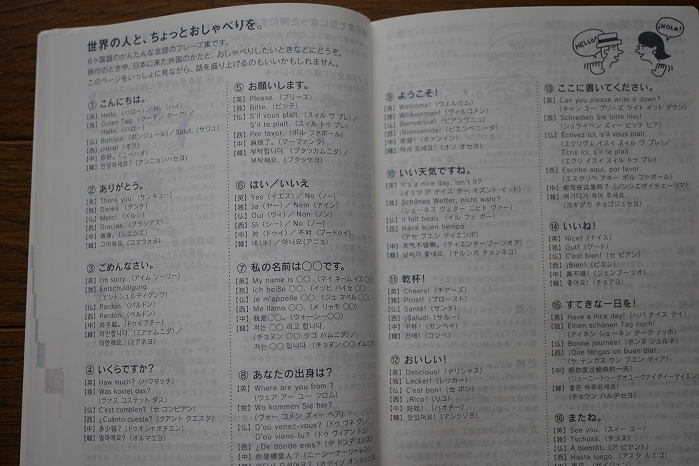 世界の人と、ちょっとおしゃべりを。
6ヶ国語のかんたんな会話のフレーズ集です。
旅行のときや、日本に来た外国のかたと、おしゃべりしたいときなどにどうぞ。
このページをいっしょに見ながら、話を盛り上げるのもいいかもしれません。
① こんにちは。
[英] Hello.（ハロー）／Hi.（ハイ）
[独] Guten Tag.（グーテン ターグ）／
Hallo.（ハロー）
[仏] Bonjour.（ボンジュール）／Salut.（サリュ）
[西] ¡Hola!（オラ）
[中] 你好。（ニーハオ）
[韓] 안녕하세요?（アンニョンハセヨ）
② ありがとう。
[英] Thank you.（サンキュー）
[独] Danke.（ダンケ）
[仏] Merci.（メルシ）
[西] Gracias.（グラシアス）
[中] 谢谢。（シエシエ）
[韓] 고마워요.（コマウォヨ）
③ ごめんなさい。
[英] I'm sorry.（アイム ソーリー）
[独] Entschuldigung.
（エントシュルディグング）
[仏] Pardon.（パルドン）
[西] Perdón.（ペルドン）
[中] 对不起。（ドゥイブチー）
[韓] 미안합니다（ミアナムニダ）／
미안해요（ミアネヨ）
④ いくらですか？
[英] How much?（ハウマッチ）
[独] Was kostet das?
（ヴァス コステット ダス）
[仏] C'est combien?（セ コンビアン）
[西] ¿Cuánto cuesta?（クアント クエスタ）
[中] 多少钱?（ドゥオシャオチエン）
[韓] 얼마예요?（オルマエヨ）
⑤ お願いします。
[英] Please.（プリーズ）
[独] Bitte.（ビッテ）
[仏] S'il vous plaît.（スィル ヴ プレ）／
S'il te plaît.（スィルトゥ プレ）
[西] Por favor.（ポル ファボール）
[中] 麻烦了。（マーファンラ）
[韓] 부탁합니다.（プタッカムニダ）／
부탁해요.（プタッケヨ）
⑥ はい／いいえ
[英] Yes（イエス）／No（ノー）
[独] Ja（ヤー）／Nein（ナイン）
[仏] Oui（ウイ）／Non（ノン）
[西] Sí（シー）／No（ノー）
[中] 对（ドゥイ）／不对（ブードゥイ）
[韓] 네（ネ）／아니요（アニョ）
⑦ 私の名前は〇〇です。
[英] My name is 〇〇.（マイ ネーム イズ〇〇）
[独] Ich heiße 〇〇.（イッヒ ハイセ〇〇）
[仏] Je m'appelle 〇〇.（ジュ マペル〇〇）
[西] Me llamo 〇〇.（メ リャモ〇〇）
[中] 我是〇〇。（ウォーシー〇〇）
[韓] 저는 〇〇 라고 합니다
（チョヌン 〇〇 ラゴ ハムニダ）／
⑧ あなたの出身は？
[英] Where are you from ?
（ウェア アー ユー フロム）
[独] Wo kommen Sie her?
（ヴォー コメン ズィー ヘア）
[仏] D'où venez-vous?（ドゥ ヴネ ヴ）／
D'où viens-tu?（ドゥ ヴィアン トゥ）
[西] ¿De dónde eres?（デ ドンデ エレス）
[中] 你是哪里人?（ニーシーナーリーレン）
⑨ ようこそ！
[英] Welcome!（ウェルカム）
[独] Willkommen!（ヴィルコメン）
[仏] Bienvenue!（ビアンヴニュ）
[西] ¡Bienvenida!（ビエンベニーダ）
[中] 欢迎!（ホァンイン）
[韓] 어서 오세요!（オソ オセヨ）
⑩ いい天気ですね。
[英] It's a nice day, isn't it?
（イッツ ア ナイス デー イズント イット）
[独] Schönes Wetter, nicht wahr?
（シェーネス ヴェター ニヒト ヴァー）
[仏] Il fait beau.（イル フェ ボー）
[西] Hace buen tiempo.
（アセ ブエン ティエンポ）
[中] 天气不错啊。（ティエンチーブーツオア）
[韓] 날씨가 좋네요.（ナルシガ チョンネヨ）
⑪ 乾杯！
[英] Cheers!（チアーズ）
[独] Prost!（プロースト）
[仏] Santé!（サンテ）
[西] ¡Salud!（サルー）
[中] 干杯!（ガンベイ）
[韓] 건배!（コンベ）
⑫ おいしい！
[英] Delicious!（デリシャス）
[独] Lecker!（レッカー）
[仏] C'est bon!（セ ボン）
[西] ¡Rico!（リコ）
[中] 好吃!（ハオチー）
[韓] 맛있어요!（マシッソヨ）
HELLO!
¡HOLA!
⑬ ここに書いてください。
[英] Can you please write it down?
（キャン ユー プリーズ ライト イット ダウン）
[独] Schreiben Sie bitte hier!
（シュライベン ズィー ビッテ ヒア）
[仏] Écrivez ici, s'il vous plaît.
（エクリヴェ イスィ スィル ヴ プレ）／
Écris ici, s'il te plaît.
（エクリ イスィ スィル トゥ プレ）
[西] Escribe aquí, por favor.
（エスクリベ アキー ポル ファボール）
[中] 能写在这里吗?（ノンシエザイチェーリマ）
[韓] 여기다가 적어 주세요
（ヨギダガ チョゴジュセヨ）
⑭ いいね！
[英] Nice!（ナイス）
[独] Gut!（グート）
[仏] C'est bien!（セ ビアン）
[西] ¡Bien!（ビエン）
[中] 真不错!（ジェンブーツオ）
[韓] 좋아요!（チョアヨ）
⑮ すてきな一日を！
[英] Have a nice day!（ハバ ナイス デイ）
[独] Einen schönen Tag noch!
（アイネン シェーネン ターク ノッホ）
[仏] Bonne journée!（ボンヌ ジュルネ）
[西] ¡Que tengas un buen día!
（ケ テンガス ウン ブエン ディア）
[中] 祝你度过愉快的一天!
[韓] 좋은 하루되세요!
（チョウン ハルデセヨ）
⑯ またね。
[英] See you.（スィー ユー）
[独] Tschüss.（チュス）
[仏] À bientôt.（ア ビアント）
[西] Hasta luego.（アスタ ルエゴ）